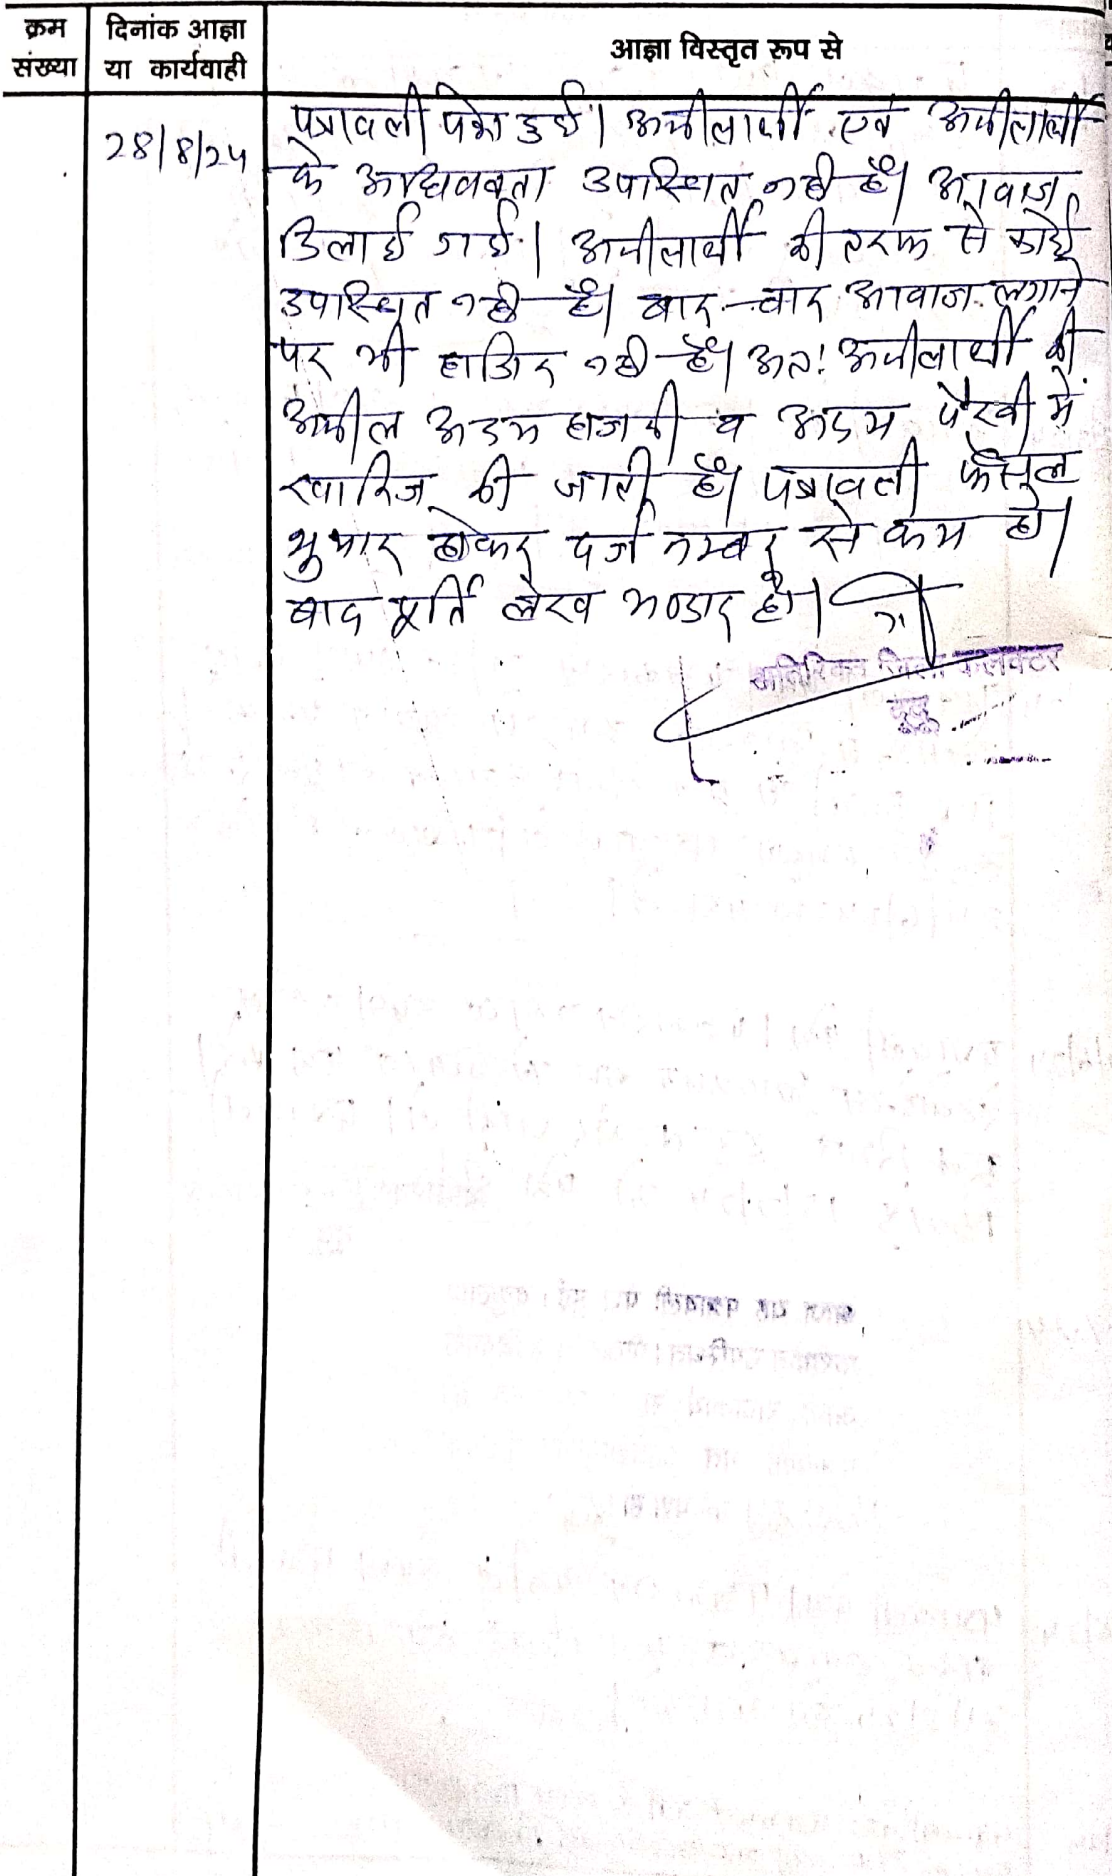 क्रम संख्या
दिनांक आज्ञा या कार्यवाही
आज्ञा विस्तृत रूप से
28/8/24
पत्रावली पेश हुई। अपीलार्थी एवं अपीलार्थी
के अधिवक्ता उपस्थित नही है। आवाज
दिलाई गई। अपीलार्थी की तरफ से कोई
उपस्थित नही है। बार-बार आवाज लगाने
पर भी हाजिर नही है। अतः अपीलार्थी की
अपील अदम हाजरी व अदम पैरवी में
खारिज की जाती है। पत्रावली फैसुल
शुमार होकर दर्ज नम्बर से कम हो।
बाद पूर्ति लेख भण्डार हो।
अतिरिक्त जिला कलक्टर